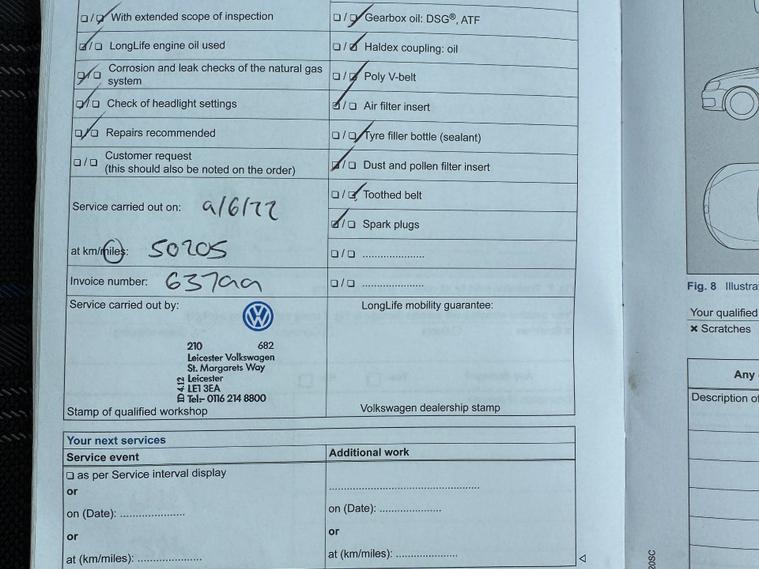 ☐/☑ With extended scope of inspection
☑/☐ LongLife engine oil used
☑/☐ Corrosion and leak checks of the natural gas
system
☑/☐ Check of headlight settings
☑/☐ Repairs recommended
☐/☐ Customer request
(this should also be noted on the order)
Service carried out on: 9/6/22
at km/miles: 50205
Invoice number: 63799
Service carried out by:
210 682
Leicester Volkswagen
St. Margarets Way
Leicester
LE1 3EA
Tel:- 0116 214 8800
Stamp of qualified workshop
☐/☑ Gearbox oil: DSG®, ATF
☐/☑ Haldex coupling: oil
☐/☑ Poly V-belt
☑/☐ Air filter insert
☐/☑ Tyre filler bottle (sealant)
☑/☐ Dust and pollen filter insert
☐/☑ Toothed belt
☑/☐ Spark plugs
☐/☐ .....................
☐/☐ .....................
LongLife mobility guarantee:
Volkswagen dealership stamp
Your next services
Service event
☐ as per Service interval display
or
on (Date): .....................
or
at (km/miles): .....................
Additional work
..................................................
on (Date): .....................
or
at (km/miles): .....................
Fig. 8 Illustra
Your qualified
× Scratches
Any
Description of